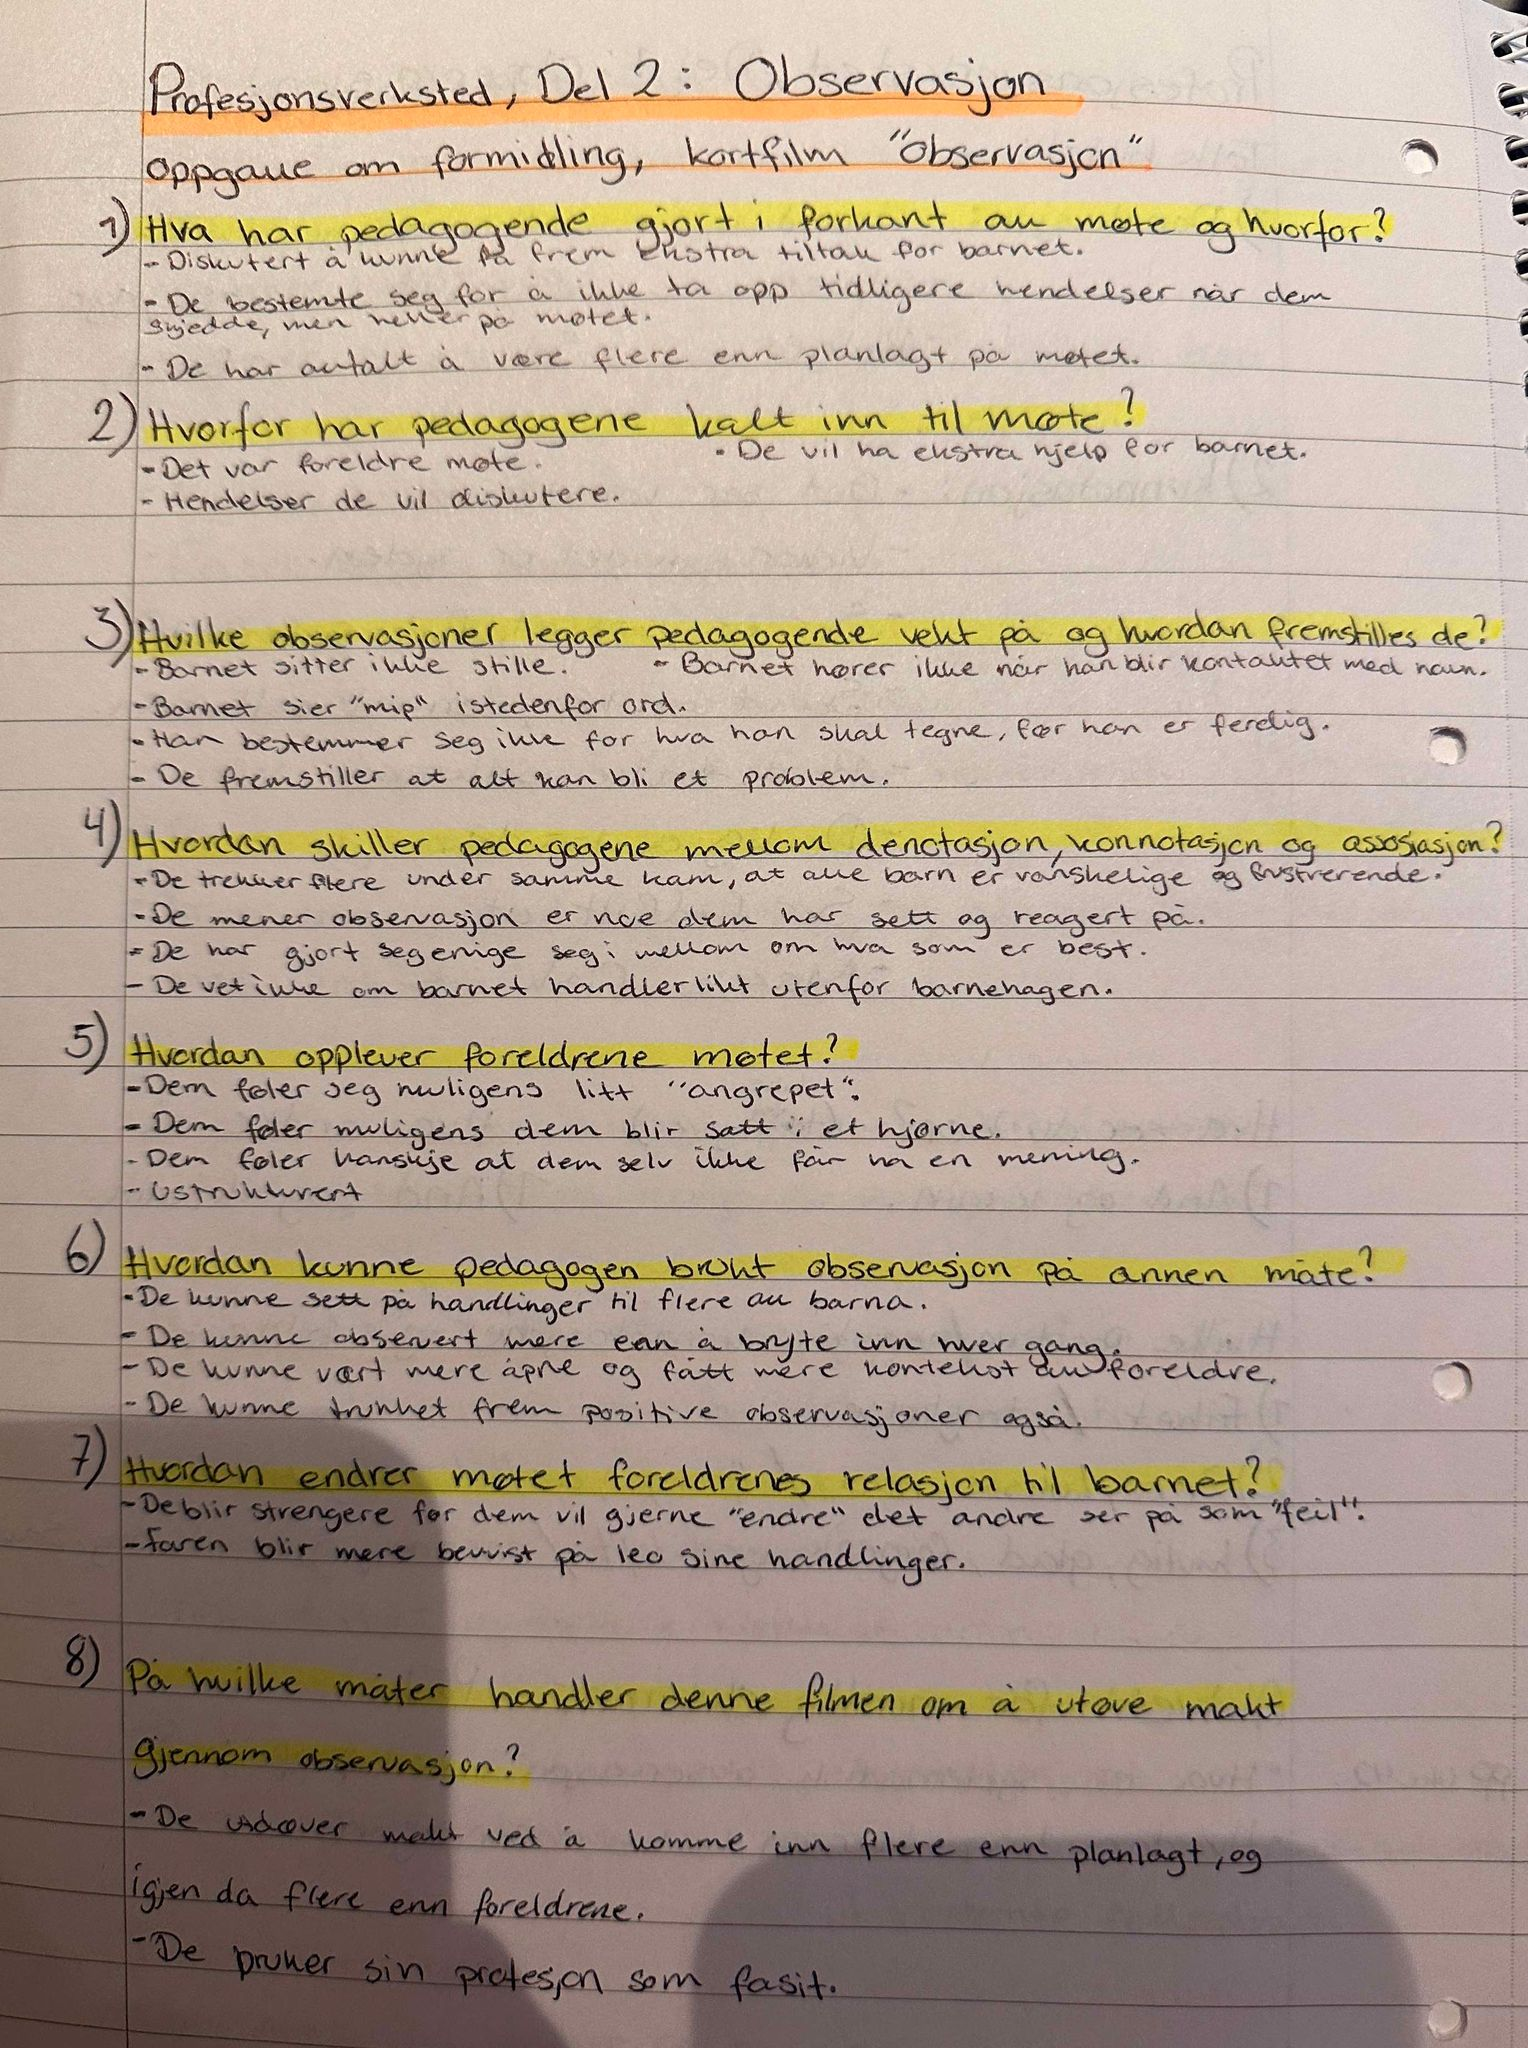 Profesjonsverksted, Del 2: Observasjon
oppgave om formidling, kortfilm "Observasjon"
1) Hva har pedagogende gjort i forkant av møte og hvorfor?
- Diskutert å kunne få frem ekstra tiltak for barnet.
- De bestemte seg for å ikke ta opp tidligere hendelser når dem
skjedde, men heller på møtet.
- De har avtalt å være flere enn planlagt på møtet.
2) Hvorfor har pedagogene kalt inn til møte?
- Det var foreldre møte. - De vil ha ekstra hjelp for barnet.
- Hendelser de vil diskutere.
3) Hvilke observasjoner legger pedagogende vekt på og hvordan fremstilles de?
- Barnet sitter ikke stille. - Barnet hører ikke når han blir kontaktet med navn.
- Barnet sier "mip" istedenfor ord.
- Han bestemmer seg ikke for hva han skal tegne, før han er ferdig.
- De fremstiller at alt kan bli et problem.
4) Hvordan skiller pedagogene mellom denotasjon, konnotasjon og assosiasjon?
- De trekker flere under samme kam, at alle barn er vanskelige og frustrerende.
- De mener observasjon er noe dem har sett og reagert på.
- De har gjort seg enige seg i mellom om hva som er best.
- De vet ikke om barnet handler likt utenfor barnehagen.
5) Hvordan opplever foreldrene møtet?
- Dem føler seg muligens litt "angrepet".
- Dem føler muligens dem blir satt i et hjørne.
- Dem føler kanskje at dem selv ikke får ha en mening.
- Ustrukturert
6) Hvordan kunne pedagogen brukt observasjon på annen måte?
- De kunne sett på handlinger til flere av barna.
- De kunne observert mere enn å bryte inn hver gang.
- De kunne vært mere åpne og fått mere kontekst av foreldre.
- De kunne trukket frem positive observasjoner også.
7) Hvordan endrer møtet foreldrenes relasjon til barnet?
- De blir strengere for dem vil gjerne "endre" det andre ser på som "feil".
- Faren blir mere bevvist på leo sine handlinger.
8) På hvilke måter handler denne filmen om å utøve makt
gjennom observasjon?
- De makt ved å komme inn flere enn planlagt, og
igjen da flere enn foreldrene.
- De bruker sin profesjon som fasit.